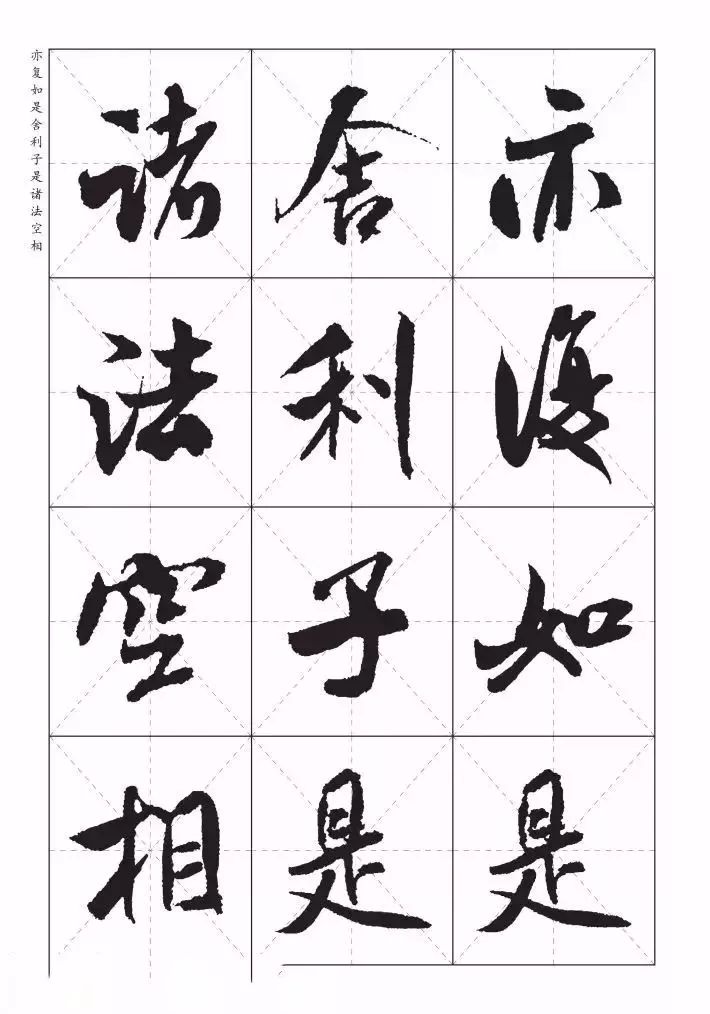 亦复如是
舍利子是
诸法空相
亦复如是舍利子是诸法空相